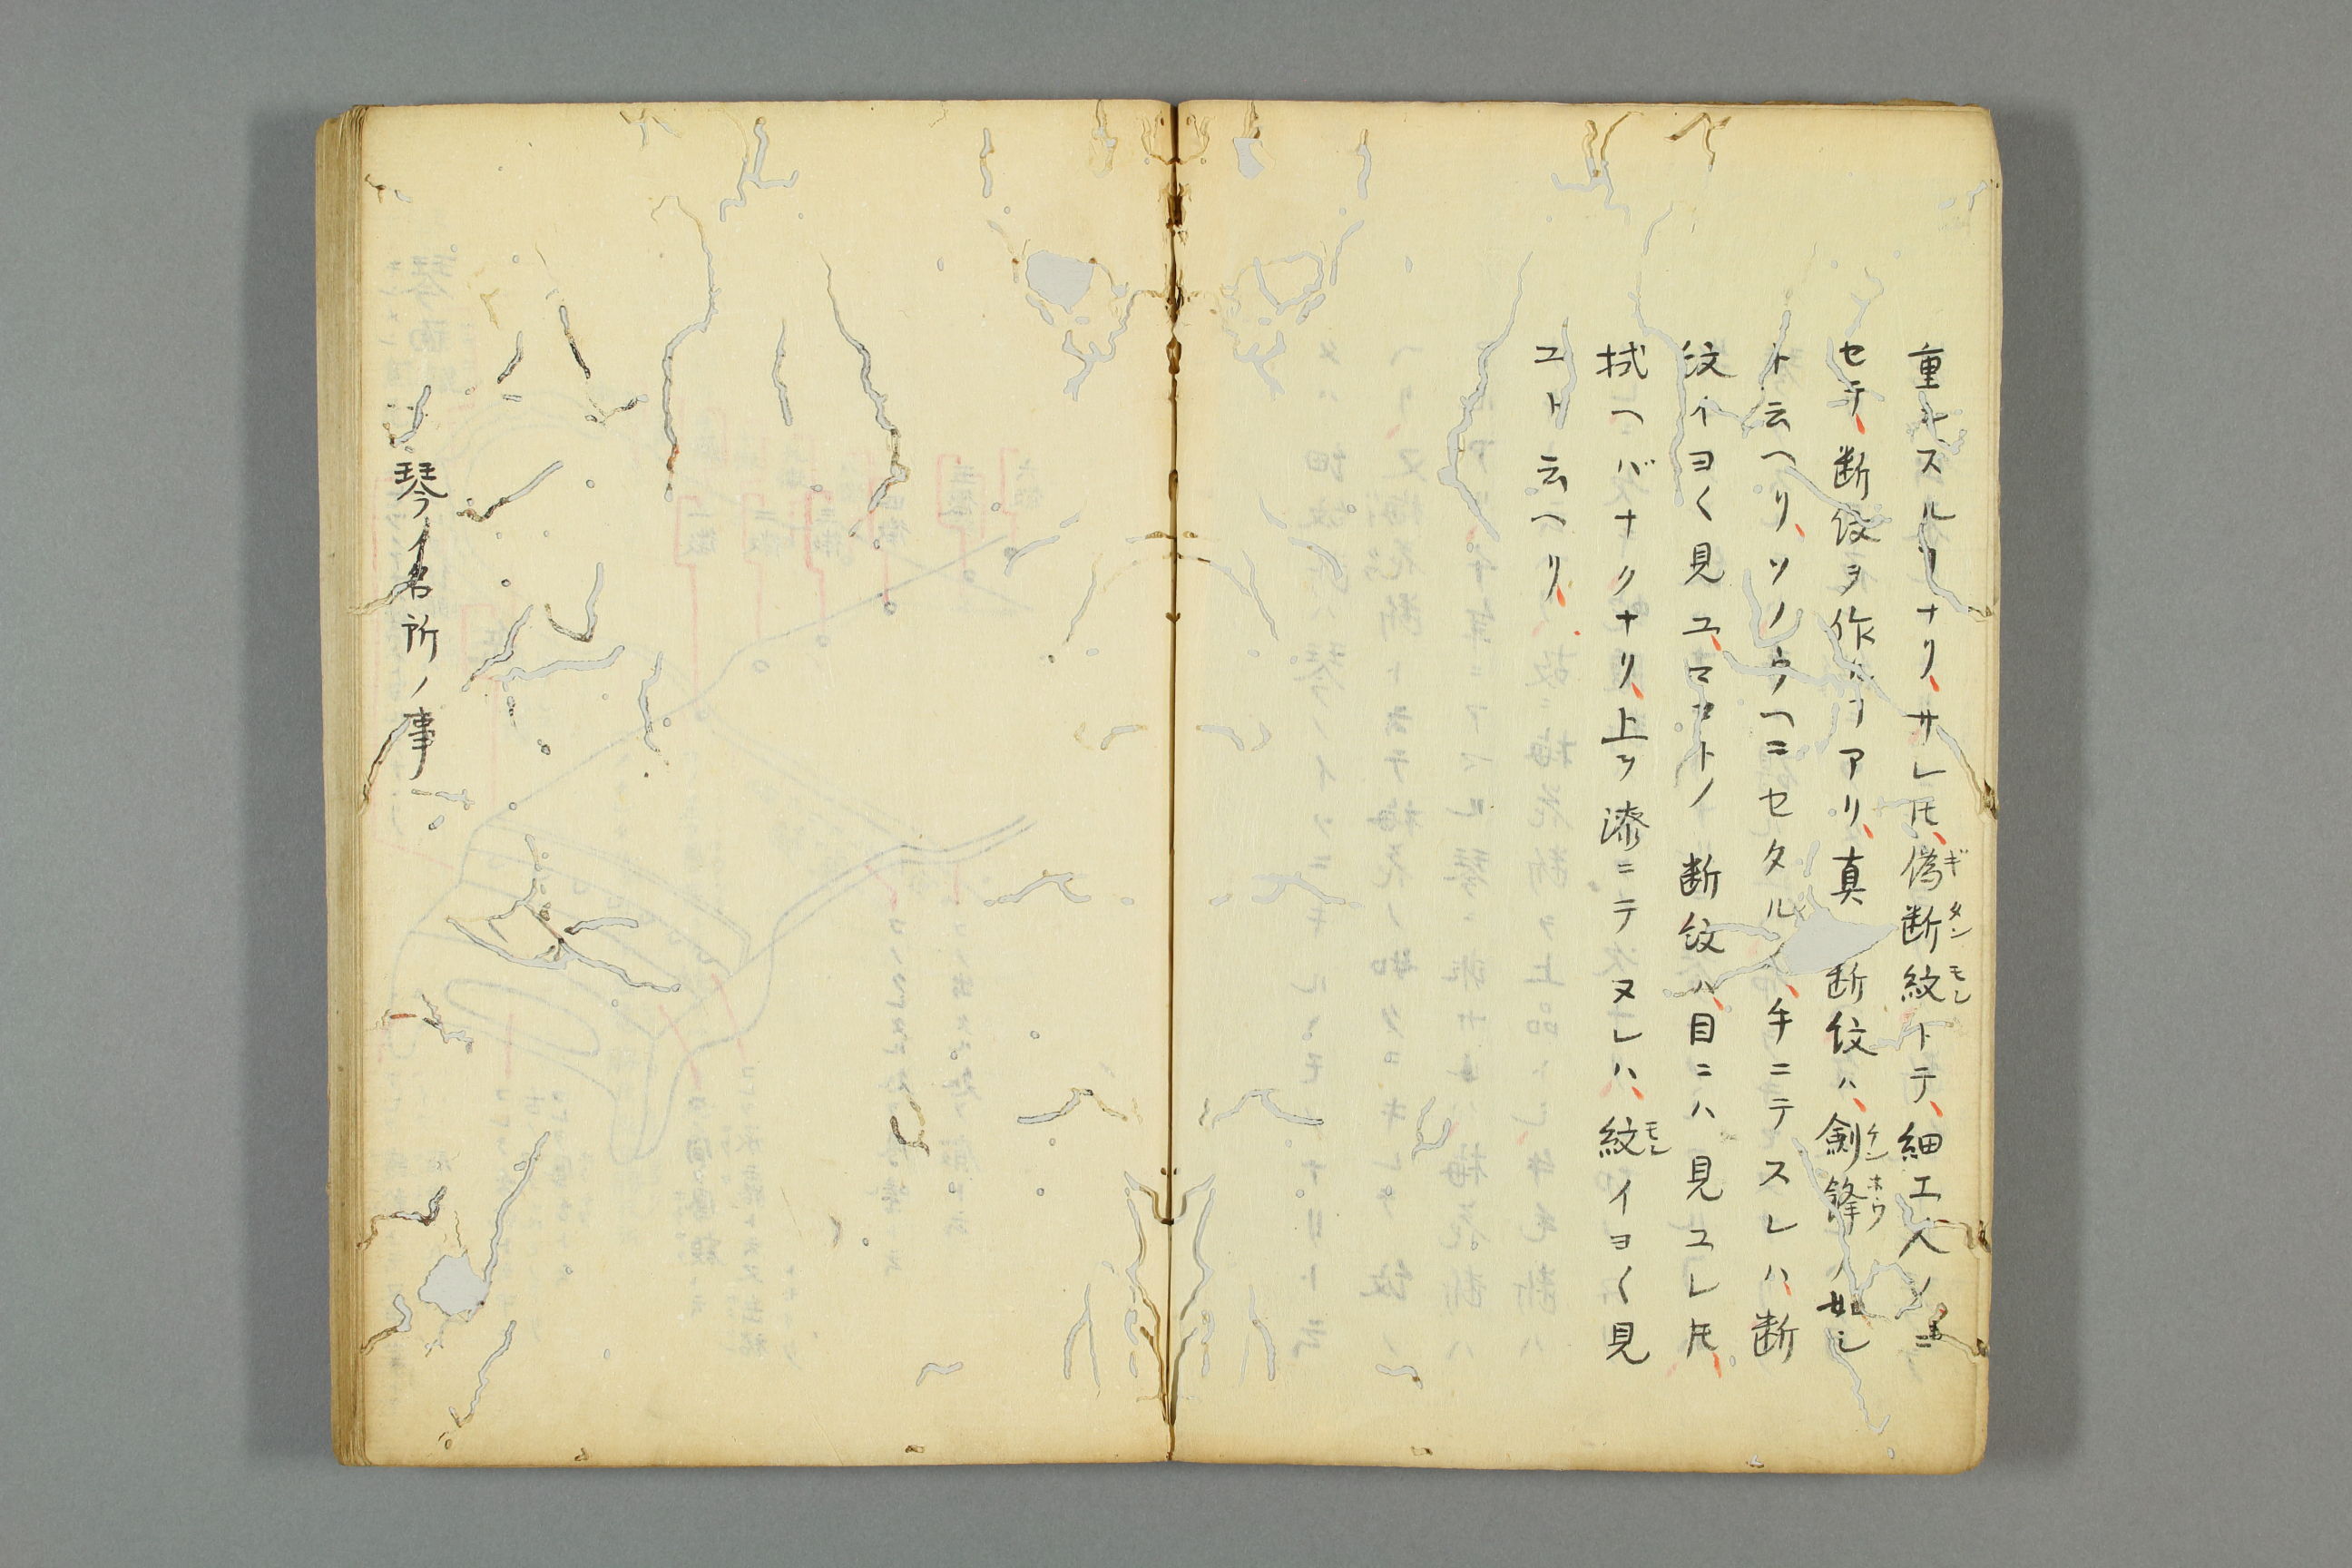 重キスルヿナリ、サレ𪜈、偽断紋トテ、細工人ノニ
ギタンモン
セテ、断紋ヲ作ルヿアリ、真断紋ハ、劍鋒ノ如シ
ケンホウ
ト云ヘリ、ソノウヘニセタルハ、手ニテスレハ、断
紋イヨく見ユ、マコトノ断紋ハ、目ニハ見ユレ𪜈、
拭ヘバナクナリ、上ヲ漆ニテヌレハ、紋イヨく見
モン
ユト云ヘリ、
琴ノ名所ノ事